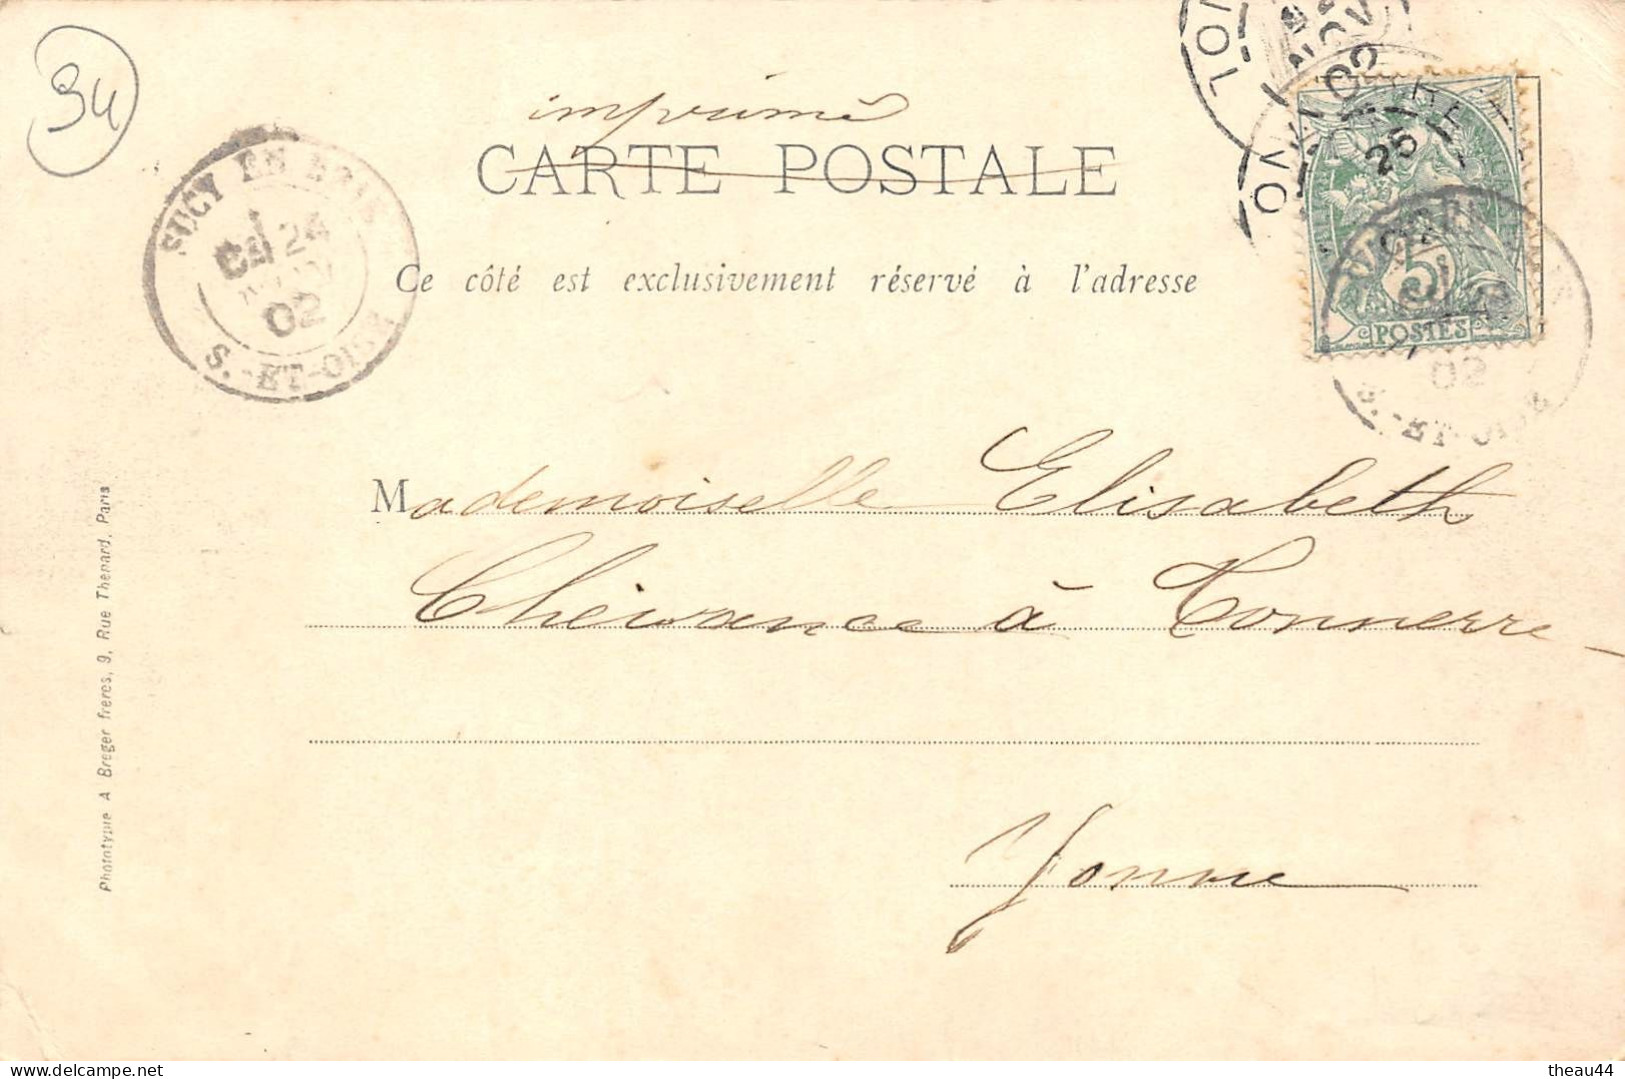 94
imprimé
CARTE POSTALE
SUCY EN BRIE
24
02
S.-ET-OISE
Ce côté est exclusivement réservé à l'adresse
25
5c
POSTES
02
S.-ET-OISE
Mademoiselle Elisabeth
Chevrance à Tonnerre
Yonne
Phototypie A Breger freres, 9, Rue Thenard, Paris
delcampe.net
theau44